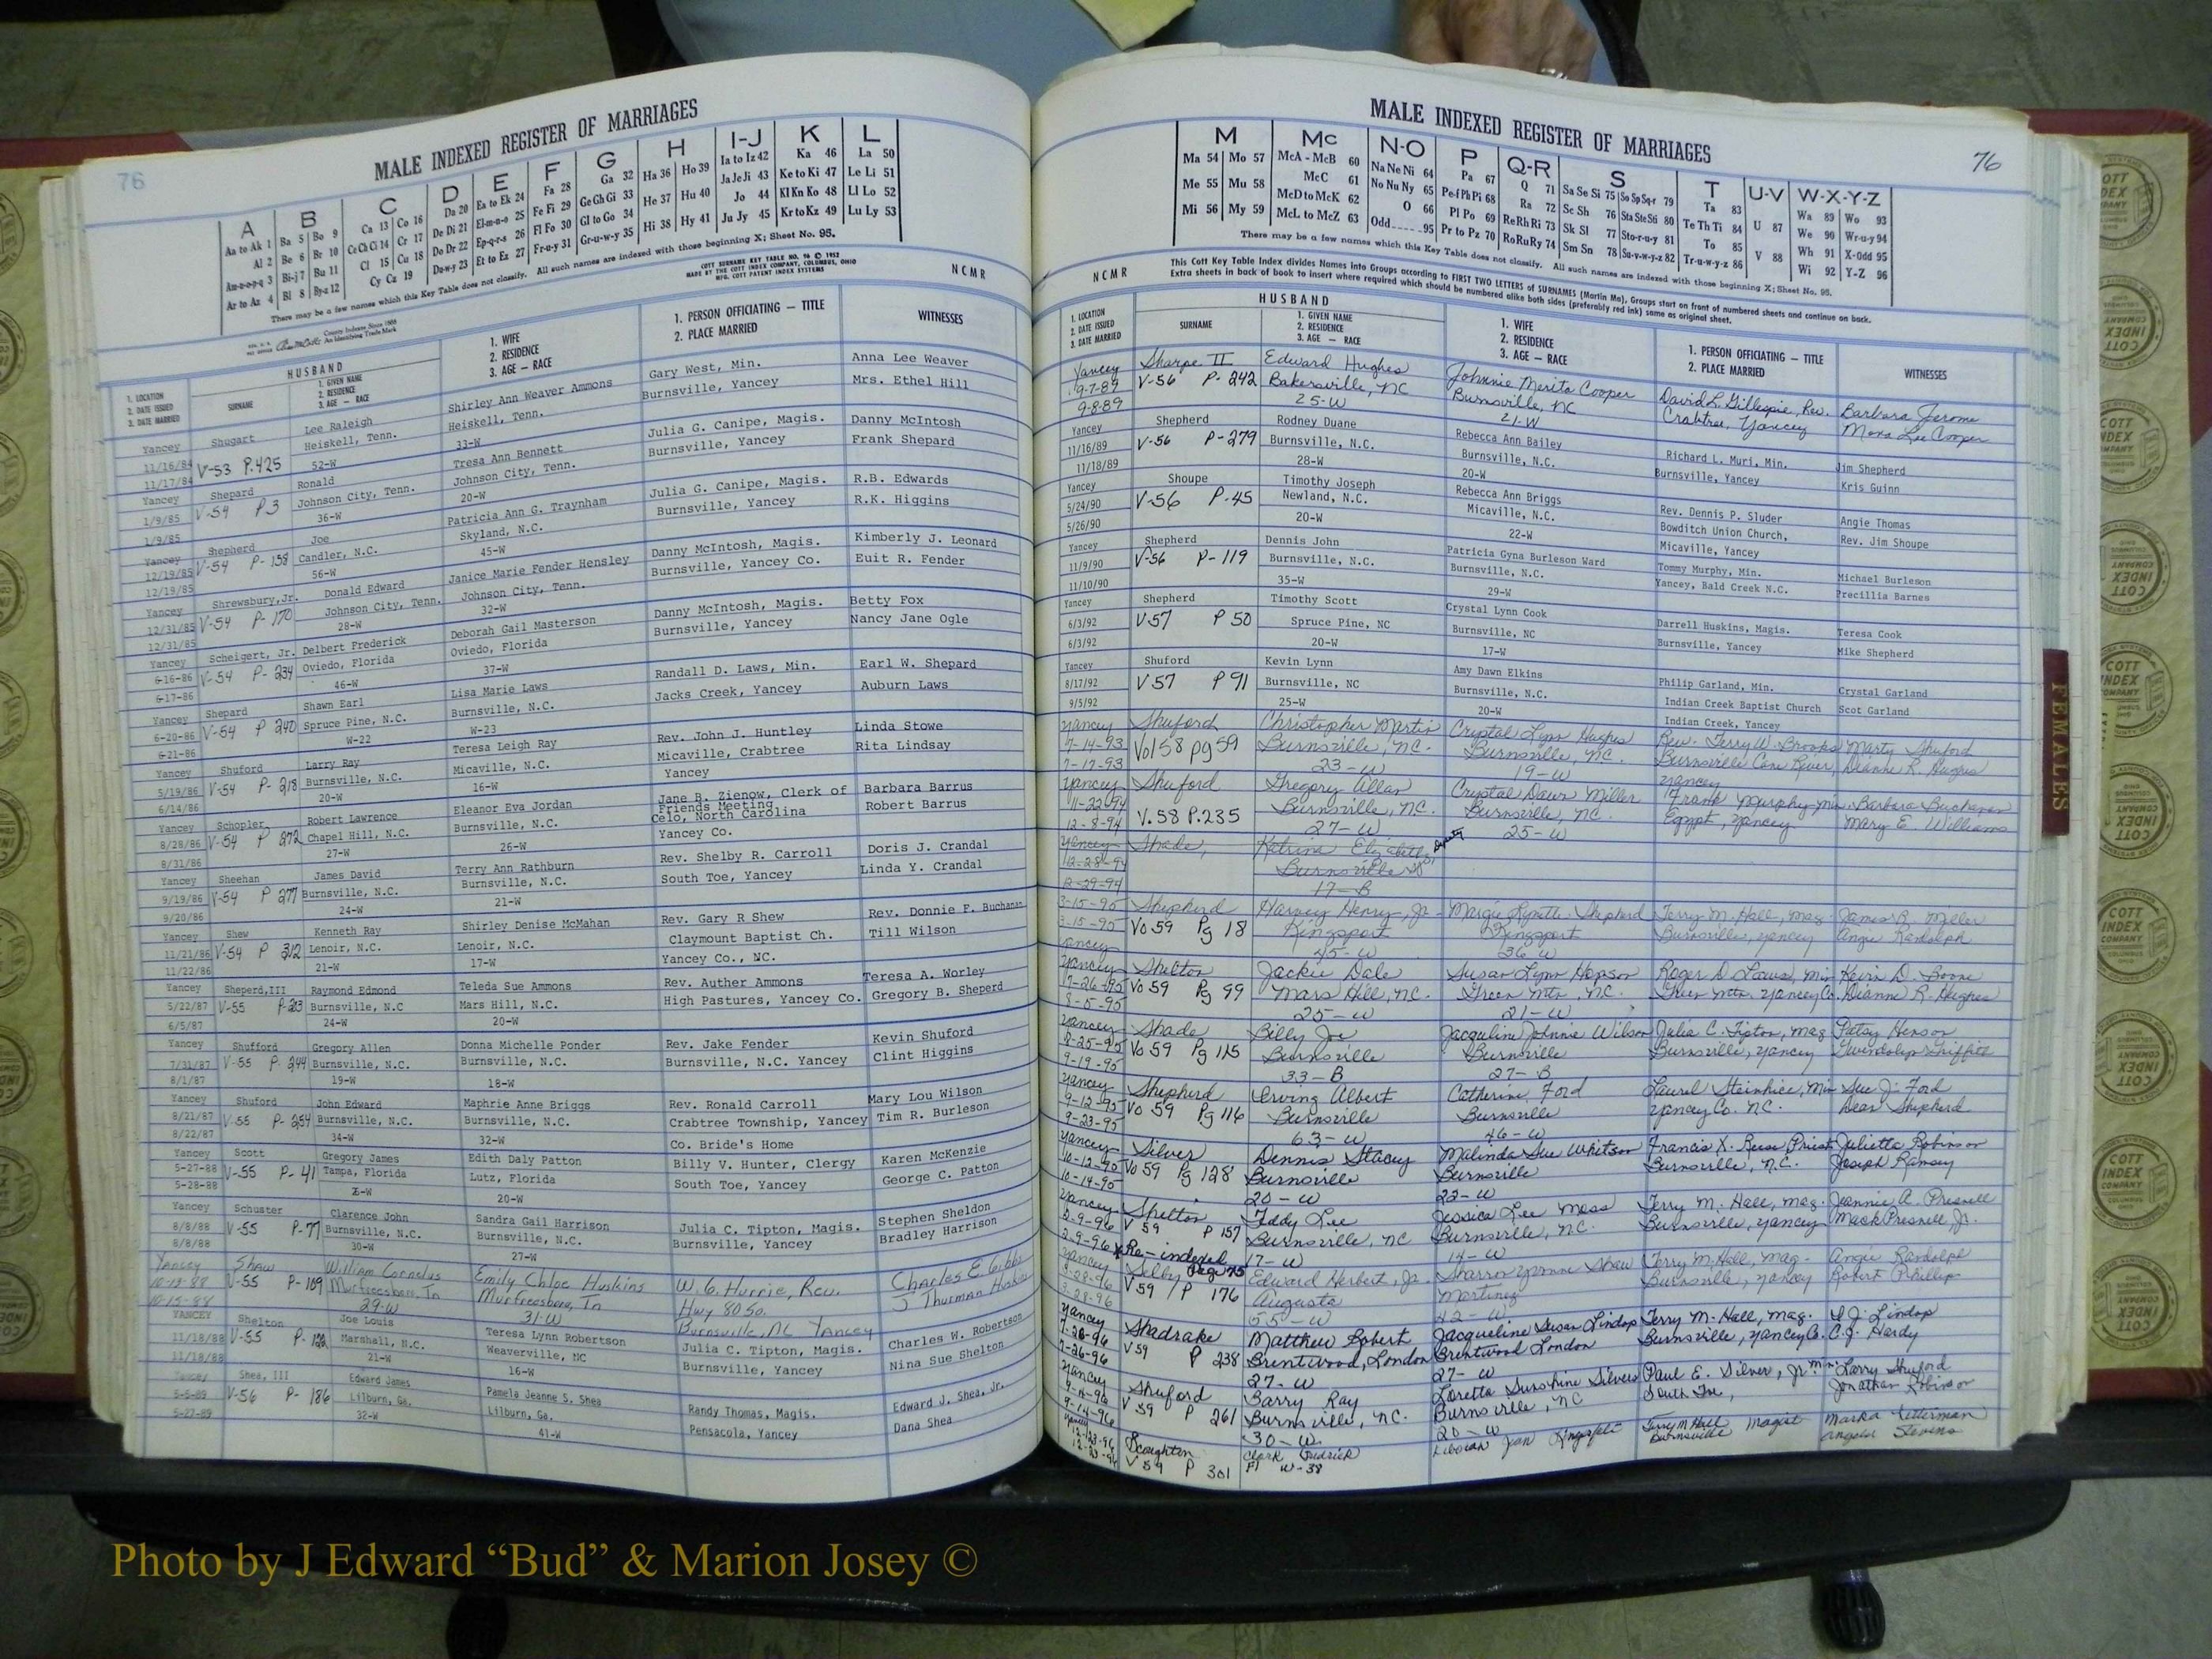 76
MALE INDEXED REGISTER OF MARRIAGES
A B C D E F G H I-J K L
Aa to Ak 1 Ba 5 Bo 9 Ca 13 Co 16 Da 20 Ea to Ek 24 Fa 28 Ga 32 Ha 36 Ho 39 Ia to Iz 42 Ka 46 La 50
Al 2 Be 6 Br 10 Ce Ch Ci 14 Cr 17 De Di 21 El-m-n-o 25 Fe Fi 29 Ge Gh Gi 33 He 37 Hu 40 Ja Je Ji 43 Ke to Ki 47 Le Li 51
Am-n-o-p-q 3 Bi-j 7 Bu 11 Cl 15 Cu 18 Do Dr 22 Ep-q-r-s 26 Fl Fo 30 Gl to Go 34 Hi 38 Hy 41 Jo 44 Kl Kn Ko 48 Ll Lo 52
Ar to Az 4 Bl 8 By-z 12 Cy Cz 19 Du-w-y 23 Et to Ez 27 Fr-u-y 31 Gr-u-w-y 35 Ju Jy 45 Kr to Kz 49 Lu Ly 53
There may be a few names which this Key Table does not classify. All such names are indexed with those beginning X; Sheet No. 95.
County Indexes Since 1888
An Identifying Trade Mark
COTT SURNAME KEY TABLE NO. 96 © 1952
MADE BY THE COTT INDEX COMPANY, COLUMBUS, OHIO
MFG. COTT PATENT INDEX SYSTEMS
NCMR
1. LOCATION 2. DATE ISSUED 3. DATE MARRIED
HUSBAND
SURNAME
1. GIVEN NAME 2. RESIDENCE 3. AGE — RACE
1. WIFE 2. RESIDENCE 3. AGE — RACE
1. PERSON OFFICIATING — TITLE 2. PLACE MARRIED
WITNESSES
Yancey Shugart Lee Raleigh Shirley Ann Weaver Ammons Gary West, Min. Anna Lee Weaver
11/16/84 V-53 P.425 Heiskell, Tenn. Heiskell, Tenn. Burnsville, Yancey Mrs. Ethel Hill
11/17/84 52-W 33-W
Yancey Shepard Ronald Tresa Ann Bennett Julia G. Canipe, Magis. Danny McIntosh
1/9/85 V-54 P3 Johnson City, Tenn. Johnson City, Tenn. Burnsville, Yancey Frank Shepard
1/9/85 36-W 20-W
Yancey Shepherd Joe Patricia Ann G. Traynham Julia G. Canipe, Magis. R.B. Edwards
12/19/85 V-54 P-158 Candler, N.C. Skyland, N.C. Burnsville, Yancey R.K. Higgins
12/19/85 56-W 45-W
Yancey Shrewsbury, Jr. Donald Edward Janice Marie Fender Hensley Danny McIntosh, Magis. Kimberly J. Leonard
12/31/85 V-54 P-170 Johnson City, Tenn. Johnson City, Tenn. Burnsville, Yancey Co. Euit R. Fender
12/31/85 28-W 32-W
Yancey Scheigert, Jr. Delbert Frederick Deborah Gail Masterson Danny McIntosh, Magis. Betty Fox
6-16-86 V-54 P-234 Oviedo, Florida Oviedo, Florida Burnsville, Yancey Nancy Jane Ogle
6-17-86 46-W 37-W
Yancey Shepard Shawn Earl Lisa Marie Laws Randall D. Laws, Min. Earl W. Shepard
6-20-86 V-54 P 240 Spruce Pine, N.C. Burnsville, N.C. Jacks Creek, Yancey Auburn Laws
6-21-86 W-22 W-23
Yancey Shuford Larry Ray Teresa Leigh Ray Rev. John J. Huntley Linda Stowe
5/19/86 V-54 P-218 Burnsville, N.C. Micaville, N.C. Micaville, Crabtree Rita Lindsay
6/14/86 20-W 16-W Yancey
Yancey Schopler Robert Lawrence Eleanor Eva Jordan Jane B. Zienow, Clerk of Barbara Barrus
Friends Meeting
8/28/86 V-54 P 272 Chapel Hill, N.C. Burnsville, N.C. Celo, North Carolina Robert Barrus
8/31/86 27-W 26-W Yancey Co.
Yancey Sheehan James David Terry Ann Rathburn Rev. Shelby R. Carroll Doris J. Crandal
9/19/86 V-54 P 277 Burnsville, N.C. Burnsville, N.C. South Toe, Yancey Linda Y. Crandal
9/20/86 24-W 21-W
Yancey Shew Kenneth Ray Shirley Denise McMahan Rev. Gary R Shew Rev. Donnie F. Buchanan
11/21/86 V-54 P 312 Lenoir, N.C. Lenoir, N.C. Claymount Baptist Ch. Till Wilson
11/22/86 21-W 17-W Yancey Co., NC.
Yancey Sheperd,III Raymond Edmond Teleda Sue Ammons Rev. Auther Ammons Teresa A. Worley
5/22/87 V-55 P-213 Burnsville, N.C Mars Hill, N.C. High Pastures, Yancey Co. Gregory B. Sheperd
6/5/87 24-W 20-W
Yancey Shufford Gregory Allen Donna Michelle Ponder Rev. Jake Fender Kevin Shuford
7/31/87 V-55 P-244 Burnsville, N.C. Burnsville, N.C. Burnsville, N.C. Yancey Clint Higgins
8/1/87 19-W 18-W
Yancey Shuford John Edward Maphrie Anne Briggs Rev. Ronald Carroll Mary Lou Wilson
8/21/87 V-55 P-254 Burnsville, N.C. Burnsville, N.C. Crabtree Township, Yancey Tim R. Burleson
8/22/87 34-W 32-W Co. Bride's Home
Yancey Scott Gregory James Edith Daly Patton Billy V. Hunter, Clergy Karen McKenzie
5-27-88 V-55 P-41 Tampa, Florida Lutz, Florida South Toe, Yancey George C. Patton
5-28-88 20-W
Yancey Schuster Clarence John Sandra Gail Harrison Julia C. Tipton, Magis. Stephen Sheldon
8/8/88 V-55 P-77 Burnsville, N.C. Burnsville, N.C. Burnsville, Yancey Bradley Harrison
8/8/88 30-W 27-W
Yancey Shaw William Cornelus Emily Chloe Huskins W.G. Hurrie, Rev. Charles E. Gibbs
V-55 P-109 Murfreesboro, Tn Murfreesboro, Tn Hwy 80 So. J Thurman
29-W 31-W Burnsville, NC Yancey
YANCEY Shelton Joe Louis Teresa Lynn Robertson Julia C. Tipton, Magis. Charles W. Robertson
11/18/88 V-55 P-122 Marshall, N.C. Weaverville, NC Burnsville, Yancey Nina Sue Shelton
11/18/88 21-W 16-W
Yancey Shea, III Edward James Pamela Jeanne S. Shea Randy Thomas, Magis. Edward J. Shea, Jr.
5-5-89 V-56 P-186 Lilburn, Ga. Lilburn, Ga. Pensacola, Yancey Dana Shea
5-27-89 32-W 41-W
76
MALE INDEXED REGISTER OF MARRIAGES
M Mc N-O P Q-R S T U-V W-X-Y-Z
Ma 54 Mo 57 McA - McB 60 Na Ne Ni 64 Pa 67 Q 71 Sa Se Si 75 So Sp Sq-r 79 Ta 83 U 87 Wa 89 Wo 93
Me 55 Mu 58 McC 61 No Nu Ny 65 Pe-f Ph Pi 68 Ra 72 Sc Sh 76 Sta Ste Sti 80 Te Th Ti 84 V 88 We 90 Wr-u-y 94
Mi 56 My 59 McD to McK 62 O 66 Pl Po 69 Re Rh Ri 73 Sk Sl 77 Sto-r-u-y 81 To 85 Wh 91 X-Odd 95
McL to McZ 63 Odd 95 Pr to Pz 70 Ro Ru Ry 74 Sm Sn 78 Su-v-w-y-z 82 Tr-u-w-y-z 86 Wi 92 Y-Z 96
There may be a few names which this Key Table does not classify. All such names are indexed with those beginning X; Sheet No. 95.
NCMR
This Cott Key Table Index divides Names into Groups according to FIRST TWO LETTERS of SURNAMES (Martin Ma), Groups start on front of numbered sheets and continue on back.
Extra sheets in back of book to insert where required which should be numbered alike both sides (preferably red ink) same as original sheet.
1. LOCATION 2. DATE ISSUED 3. DATE MARRIED
HUSBAND
SURNAME
1. GIVEN NAME 2. RESIDENCE 3. AGE — RACE
1. WIFE 2. RESIDENCE 3. AGE — RACE
1. PERSON OFFICIATING — TITLE 2. PLACE MARRIED
WITNESSES
Yancey Sharpe II Edward Hughes Johnnie Merita Cooper David L. Gillespie, Rev. Barbara Jerome
9-7-89 V-56 P-242 Bakersville, NC Burnsville, NC Crabtree, Yancey Mona Lee Cooper
9-8-89 25-W 21-W
Yancey Shepherd Rodney Duane Rebecca Ann Bailey Richard L. Muri, Min. Jim Shepherd
11/16/89 V-56 P-279 Burnsville, N.C. Burnsville, N.C. Burnsville, Yancey Kris Guinn
11/18/89 28-W 20-W
Yancey Shoupe Timothy Joseph Rebecca Ann Briggs Rev. Dennis P. Sluder Angie Thomas
5/24/90 V-56 P-45 Newland, N.C. Micaville, N.C. Bowditch Union Church, Rev. Jim Shoupe
5/26/90 20-W 22-W Micaville, Yancey
Yancey Shepherd Dennis John Patricia Gyna Burleson Ward Tommy Murphy, Min. Michael Burleson
11/9/90 V-56 P-119 Burnsville, N.C. Burnsville, N.C. Yancey, Bald Creek N.C. Precillia Barnes
11/10/90 35-W 29-W
Yancey Shepherd Timothy Scott Crystal Lynn Cook Darrell Huskins, Magis. Teresa Cook
6/3/92 V57 P 50 Spruce Pine, NC Burnsville, NC Burnsville, Yancey Mike Shepherd
6/3/92 20-W 17-W
Yancey Shuford Kevin Lynn Amy Dawn Elkins Philip Garland, Min. Crystal Garland
8/17/92 V57 P 91 Burnsville, NC Burnsville, N.C. Indian Creek Baptist Church Scot Garland
9/5/92 25-W 20-W Indian Creek, Yancey
Yancey Shuford Christopher Martin Crystal Lynn Hughes Rev. Terry W. Brooks Marty Shuford
7-14-93 Vol 58 pg 59 Burnsville, NC. Burnsville, NC. Burnsville Cane River, Dianne R. Hughes
7-17-93 23-W 19-W Yancey
Yancey Shuford Gregory Allan Crystal Dawn Miller Frank Murphy-Min. Barbara Buchanan
11-22-94 V.58 P.235 Burnsville, NC. Burnsville, NC. Egypt, Yancey Mary E. Williams
12-8-94 27-W 25-W
Yancey Shade, Katrina Elizabeth
12-28-94 Burnsville
12-29-94 17-B
3-15-95 Shepherd Harvey Henry, Jr. Margie Lynette Shepherd Terry M. Hall, Mag. James R. Miller
3-15-95 Vo 59 Pg 18 Kingsport Kingsport Burnsville, Yancey Angie Randolph
Yancey 45-W 36 W
Yancey Shelton Jackie Dale Susan Lynn Hopson Roger D Laws, Min Kevin D. Boone
7-26-95 Vo 59 Pg 99 Mars Hill, NC. Green Mtn, NC. Green Mtn, Yancey Co. Dianne R. Hughes
8-5-95 25-W 21-W
Yancey Shade Billy Joe Jacquline Johnnie Wilson Julia C. Tipton, Mag Patsy Henson
8-25-95 Vo 59 Pg 115 Burnsville Burnsville Burnsville, Yancey Gwendolyn Griffith
9-19-95 33-B 27-B
Yancey Shepherd Irving Albert Catherine Ford Laurel Steinhice, Min Sue J. Ford
9-12-95 Vo 59 Pg 116 Burnsville Burnsville Yancey Co. NC. Dean Shepherd
9-23-95 63-W 46-W
Yancey Silver Dennis Stacey Malinda Sue Whitson Francis X. Reese Priest Julietta Robinson
10-12-95 Vo 59 Pg 128 Burnsville Burnsville Burnsville, N.C. Joseph Ramsey
10-14-95 20-W 22-W
Yancey Shelton Teddy Lee Jessica Lee Moss Terry M. Hall, Mag. Jeannie A. Presnell
2-9-96 V 59 P 157 Burnsville, NC Burnsville, N.C. Burnsville, Yancey Mack Presnell, Jr.
2-9-96 Re-indexed Page 75 17-W 14-W
Yancey Selby Edward Herbert, Jr. Sharron Yvonne Shaw Terry M. Hall, Mag- Angie Randolph
3-28-96 V59 / P 176 Augusta Martinez Burnsville, Yancey Robert Phillips
3-28-96 55-W 42-W
Yancey Shadrake Matthew Robert Jacqueline Susan Lindop Terry M. Hall, Mag. D.J. Lindop
7-26-96 V59 P 238 Brentwood, London Brentwood London Burnsville, Yancey Co. C.J. Hardy
7-26-96 27-W 27-W
Yancey Shuford Barry Ray Loretta Sunshine Silvers Paul E. Silver, Jr. Min. Larry Shuford
V 59 P 261 Burnsville, NC. Burnsville, NC South Toe, Jonathan Robinson
9-14-96 30-W 20-W
Yancey Scoughton Clark Fredrick Jean Terry M Hall Magist Marka Letterman
12-23-96 V 59 P 301 Fl W-38 Burnsville Angela Stevens
12-23-96
FEMALES
COTT INDEX COMPANY
Photo by J Edward “Bud” & Marion Josey ©